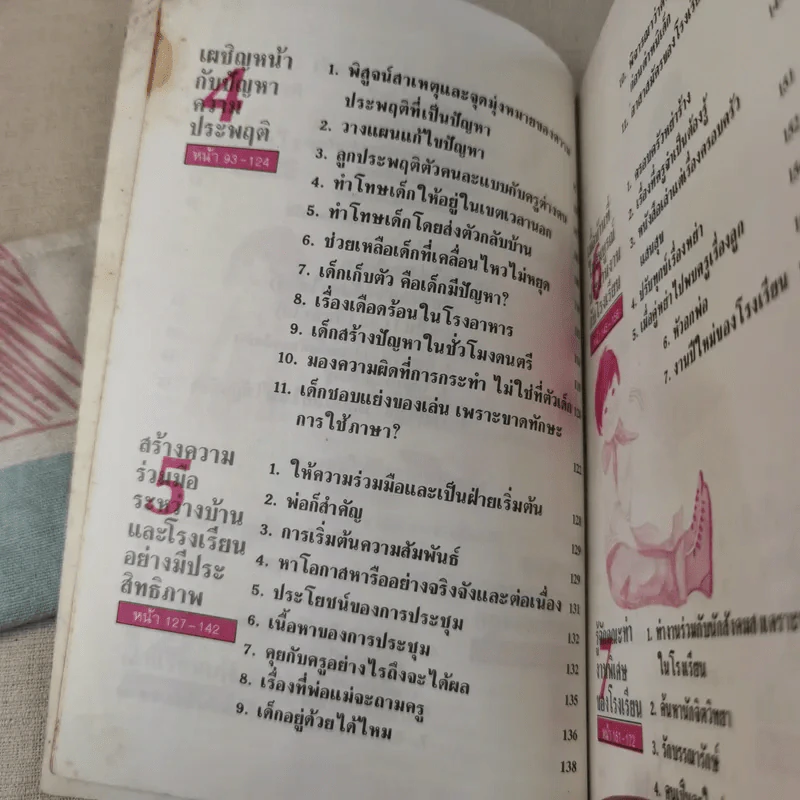 เผชิญหน้า
กับปัญหา
ความ
ประพฤติ
4
หน้า 93-124
1. พิสูจน์สาเหตุและจุดมุ่งหมายของความ
ประพฤติที่เป็นปัญหา
2. วางแผนแก้ไขปัญหา
3. ลูกประพฤติตัวคนละแบบกับครูต่างคน
4. ทำโทษเด็กให้อยู่ในเขตเวลานอก
5. ทำโทษเด็กโดยส่งตัวกลับบ้าน
6. ช่วยเหลือเด็กที่เคลื่อนไหวไม่หยุด
7. เด็กเก็บตัว คือเด็กมีปัญหา?
8. เรื่องเดือดร้อนในโรงอาหาร
9. เด็กสร้างปัญหาในชั่วโมงดนตรี
10. มองความผิดที่การกระทำ ไม่ใช่ที่ตัวเด็ก
11. เด็กชอบแย่งของเล่น เพราะขาดทักษะ
การใช้ภาษา? 122
สร้างความ
ร่วมมือ
ระหว่างบ้าน
และโรงเรียน
อย่างมีประ
สิทธิภาพ
5
หน้า 127-142
1. ให้ความร่วมมือและเป็นฝ่ายเริ่มต้น
2. พ่อก็สำคัญ 128
3. การเริ่มต้นความสัมพันธ์ 129
4. หาโอกาสหารืออย่างจริงจังและต่อเนื่อง 129
5. ประโยชน์ของการประชุม 131
6. เนื้อหาของการประชุม 132
7. คุยกับครูอย่างไรถึงจะได้ผล 132
8. เรื่องที่พ่อแม่จะถามครู 135
9. เด็กอยู่ด้วยได้ไหม 136
138
11. อาสาสมัครของโรงเรียน
6
1. ครอบครัวหย่าร้าง
2. เรื่องที่ครูจำเป็นต้องรู้
3. หนังสือเล่มแค่เรื่องครอบครัว
แสนสุข
4. ปรับทุกข์เรื่องหย่า
5. เมื่อคู่หย่าไปพบครูเรื่องลูก
6. หัวอกพ่อ
7. งานปีใหม่ของโรงเรียน
151
152
ของโรงเรียน
7
หน้า 161-172
1. ทำงานร่วมกับนักสังคมสงเคราะห์
ในโรงเรียน
2. ค้นหานักจิตวิทยา
3. รักบรรณารักษ์